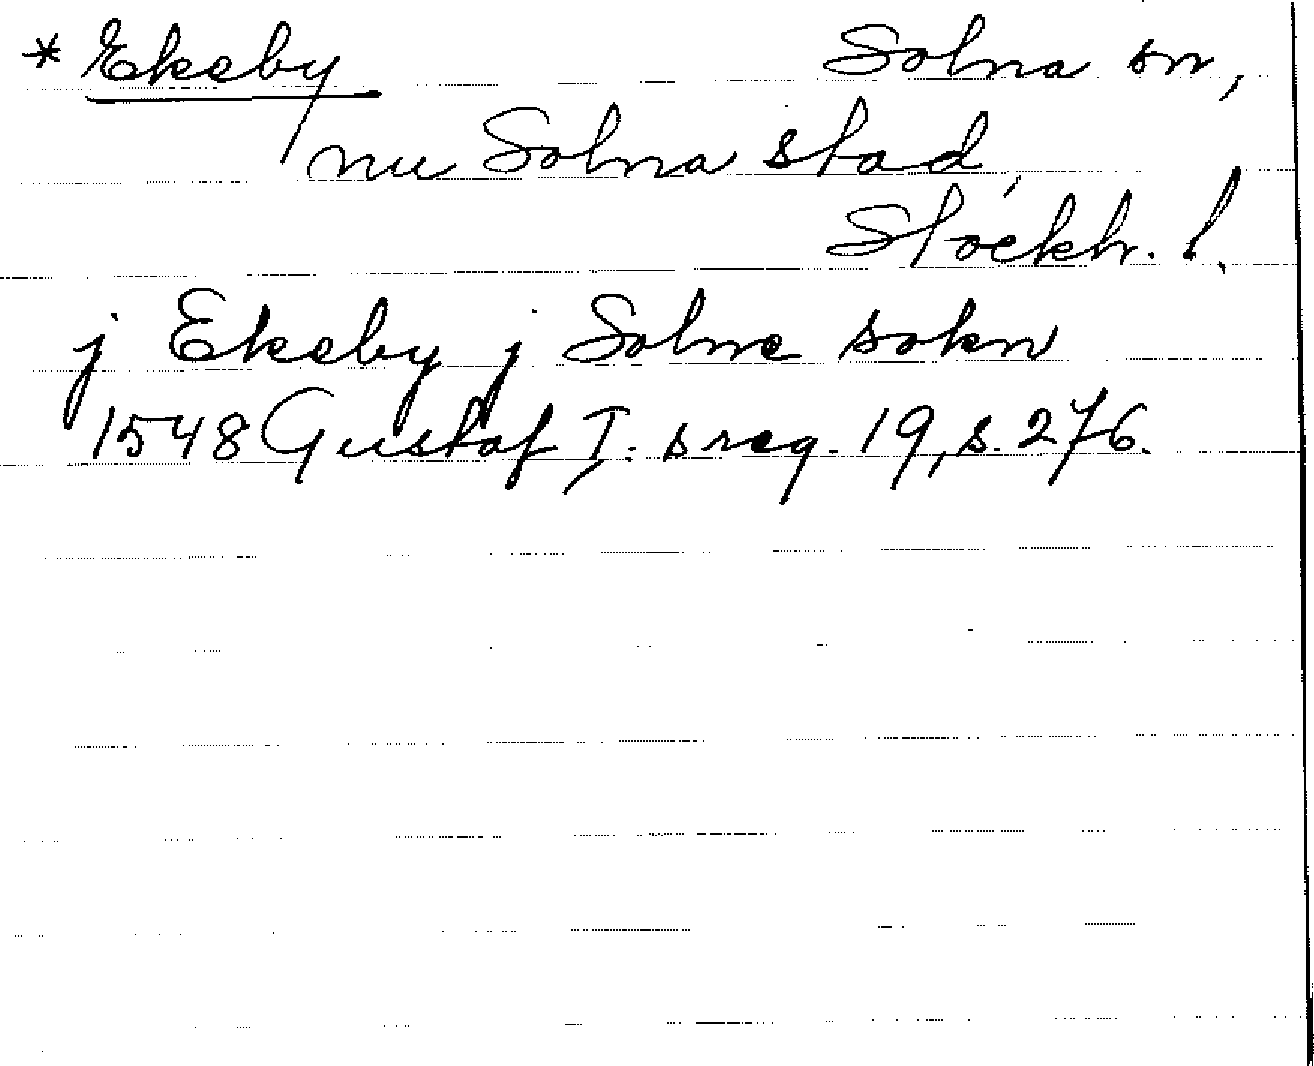 * Ekeby Solna sn,
nu Solna stad,
Stockh. l.
j Ekeby j Solne sokn
1548 Gustaf I:s reg. 19, s. 276.